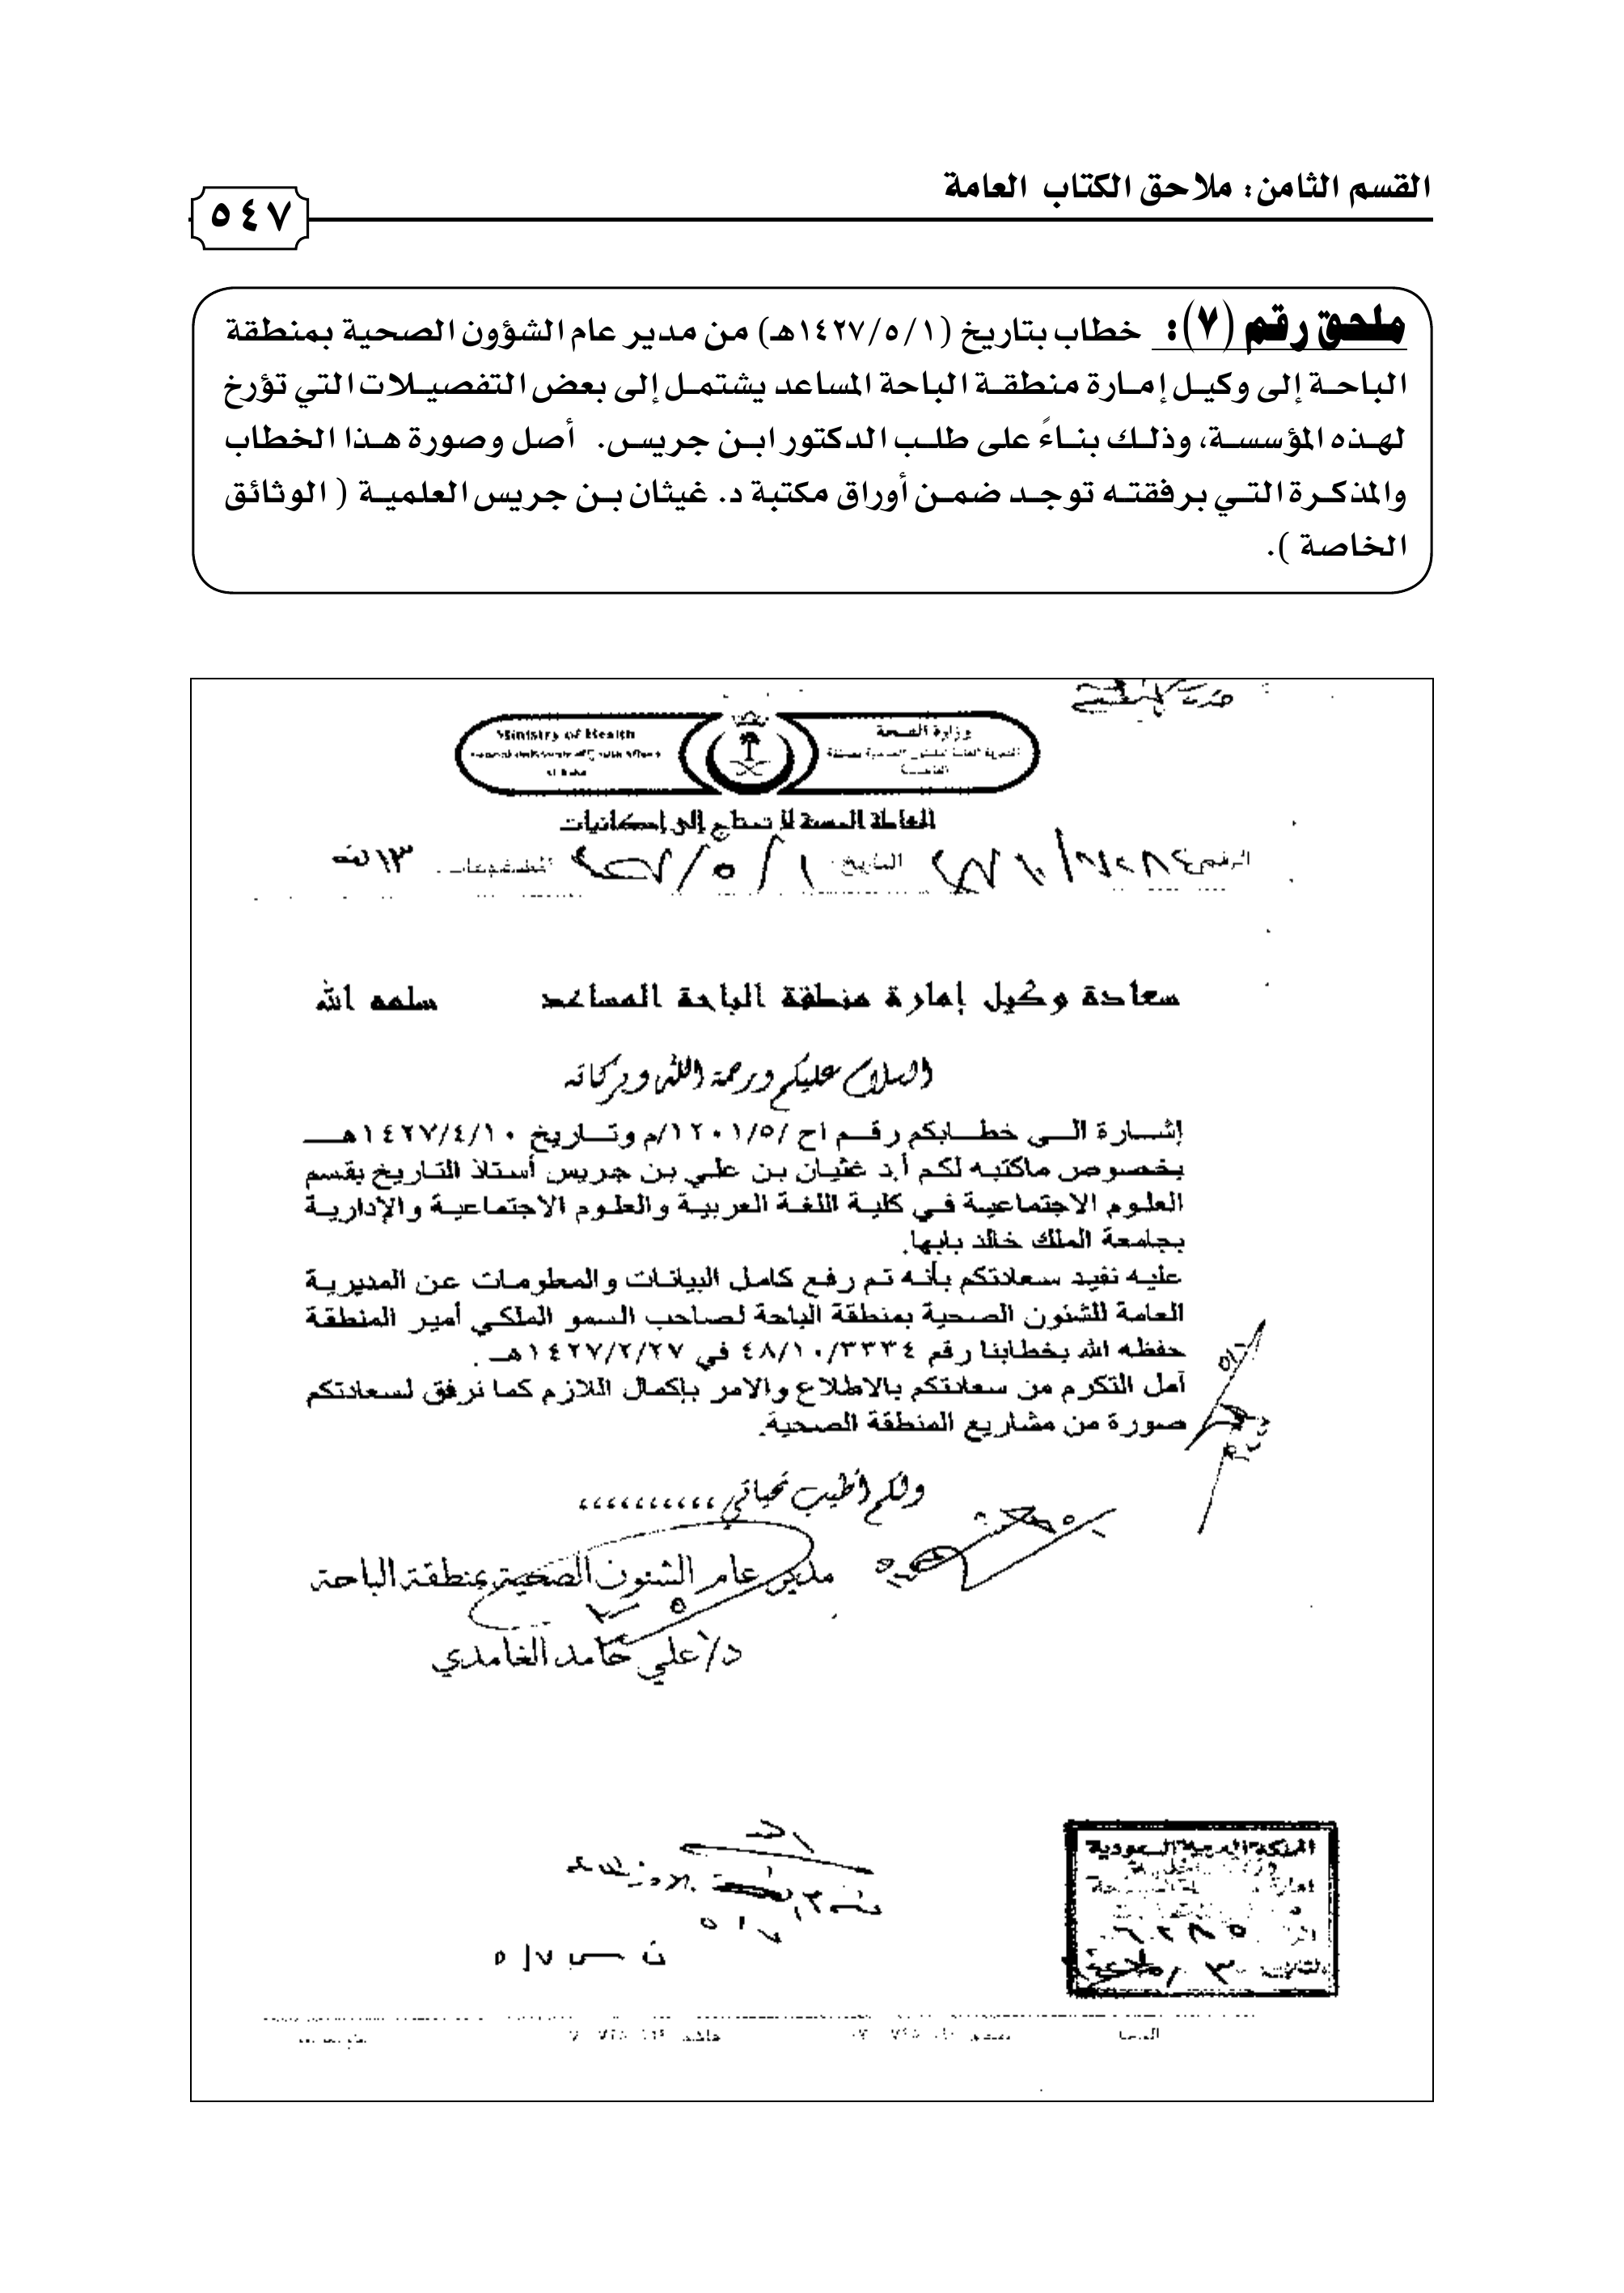 القسم الثامن: ملاحق الكتاب العامة
٥٤٧
ملحق رقم (٧): خطاب بتاريخ (١٤٢٧/٥/١هـ) من مدير عام الشؤون الصحية بمنطقة
الباحة إلى وكيل إمارة منطقة الباحة المساعد يشتمل إلى بعض التفصيلات التي تؤرخ
لهذه المؤسسة، وذلك بناءً على طلب الدكتور ابن جريس. أصل وصورة هذا الخطاب
والمذكرة التي برفقته توجد ضمن أوراق مكتبة د. غيثان بن جريس العلمية ( الوثائق
الخاصة ).
وزارة الصحة
Ministry of Health
المعاملة الحسنة لا تحتاج إلى إمكانيات
الرقم
التاريخ:
سعادة وكيل إمارة منطقة الباحة المساعد سلمه الله
السلام عليكم ورحمة الله وبركاته
إشارة الى خطابكم رقم اح /١٢٠١/٥/م وتاريخ ١٤٢٧/٤/١٠هـ
بخصوص ماكتبه لكم أ.د غثيان بن علي بن جريس أستاذ التاريخ بقسم
العلوم الاجتماعية في كلية اللغة العربية والعلوم الاجتماعية والإدارية
بجامعة الملك خالد بابها.
عليه نفيد سعادتكم بأنه تم رفع كامل البيانات والمعلومات عن المديرية
العامة للشئون الصحية بمنطقة الباحة لصاحب السمو الملكي أمير المنطقة
حفظه الله بخطابنا رقم ٤٨/١٠/٣٣٣٤ في ١٤٢٧/٢/٢٧هـ .
آمل التكرم من سعادتكم بالاطلاع والامر بإكمال اللازم كما نرفق لسعادتكم
صورة من مشاريع المنطقة الصحية.
ولكم أطيب تحياتي ،،،،،،،،،،
مدير عام الشئون الصحية بمنطقة الباحة
د/علي حامد الغامدي
المملكة العربية السعودية